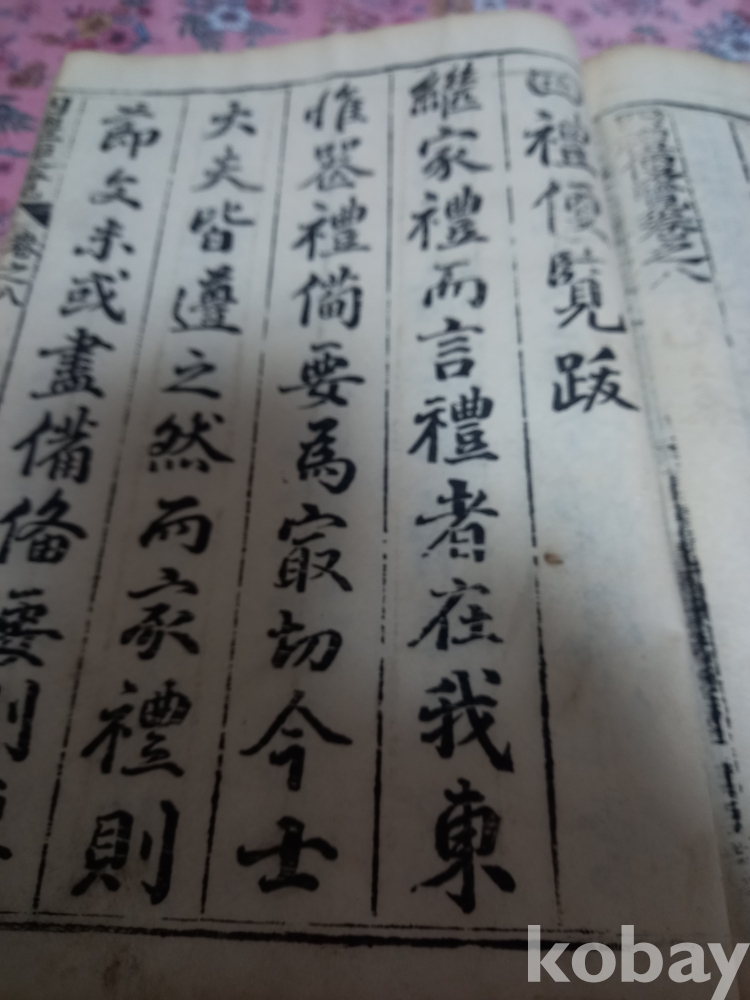 四禮便覽跋
繼家禮而言禮者在我東
惟喪禮備要爲㝡切今士
大夫皆遵之然而家禮則
節文未或盡備備要則
卷之八
卷之八
kobay